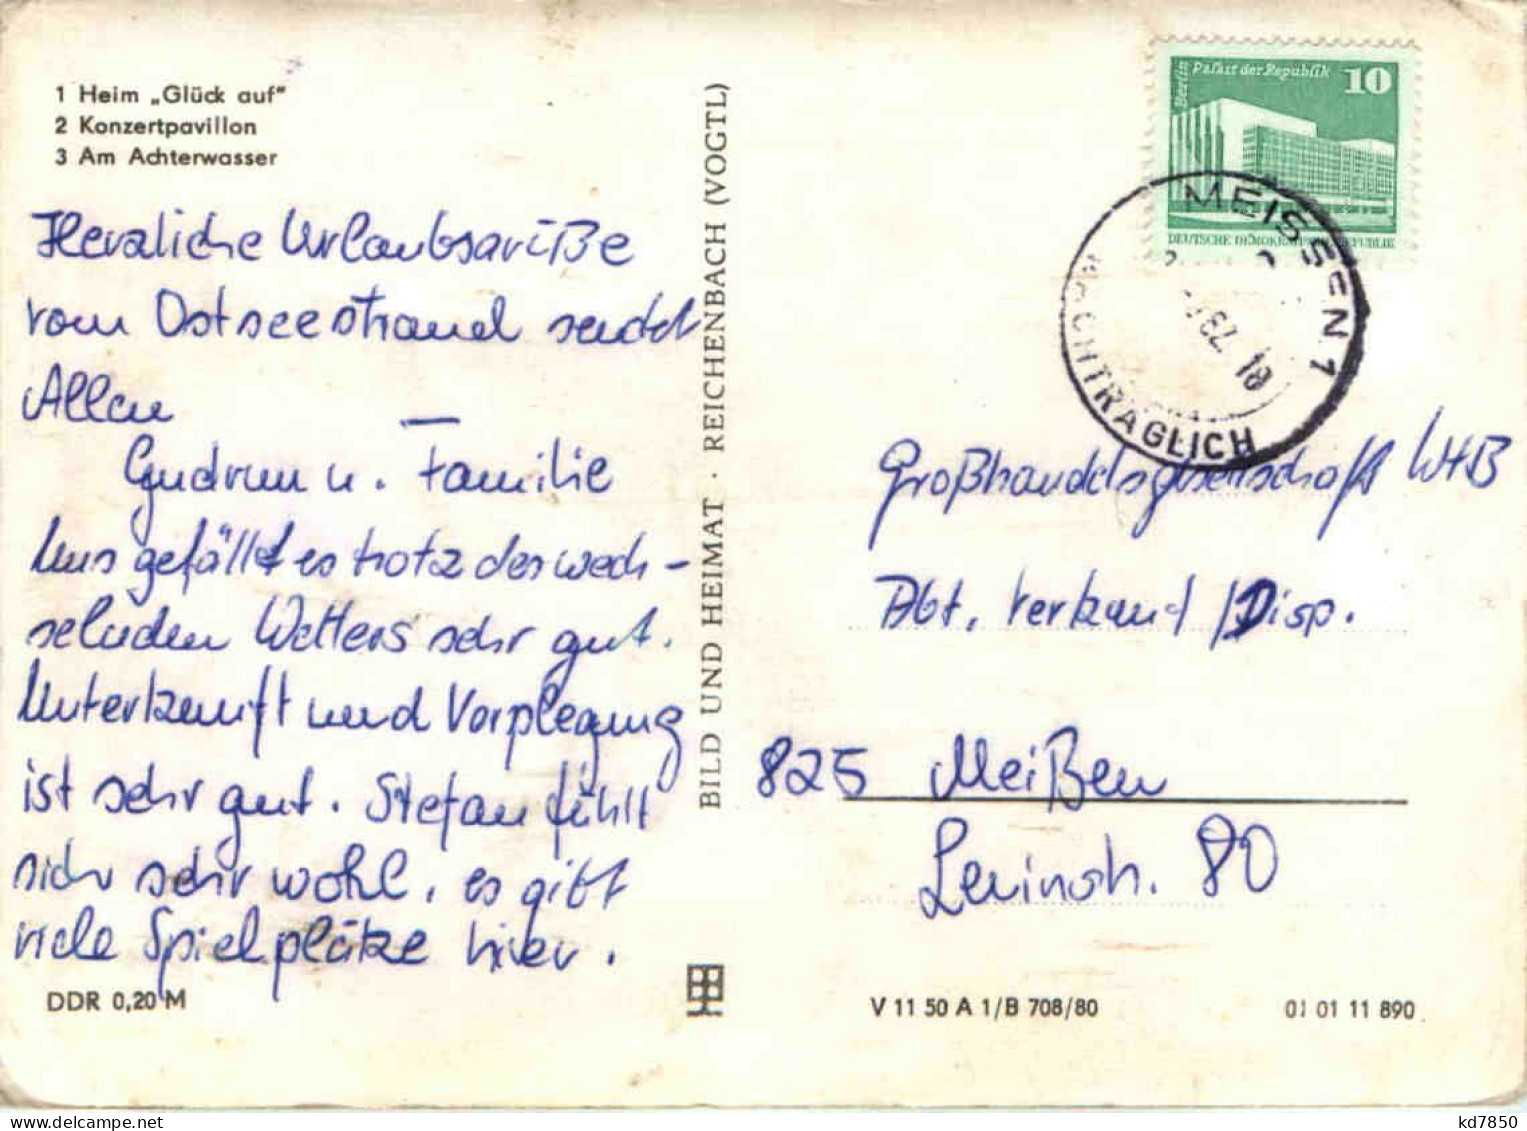 1 Heim „Glück auf"
2 Konzertpavillon
3 Am Achterwasser
Herzliche Urlaubsgrüße
vom Ostseestrand sendet
Allen
Gudrun u. Familie
Uns gefällt es trotz des wech-
selnden Wetters sehr gut.
Unterkunft und Verpflegung
ist sehr gut. Stefan fühlt
sich sehr wohl, es gibt
viele Spielplätze hier.
DDR 0,20 M
BILD UND HEIMAT · REICHENBACH (VOGTL)
Berlin
Palast der Republik 10
DEUTSCHE DEMOKRATISCHE REPUBLIK
MEISSEN 1
NACHTRÄGLICH
Großhandelsgesellschaft WtB
Abt. Verkauf / Disp.
825 Meißen
Leninstr. 80
V 11 50 A 1/B 708/80
01 01 11 890
kd7850